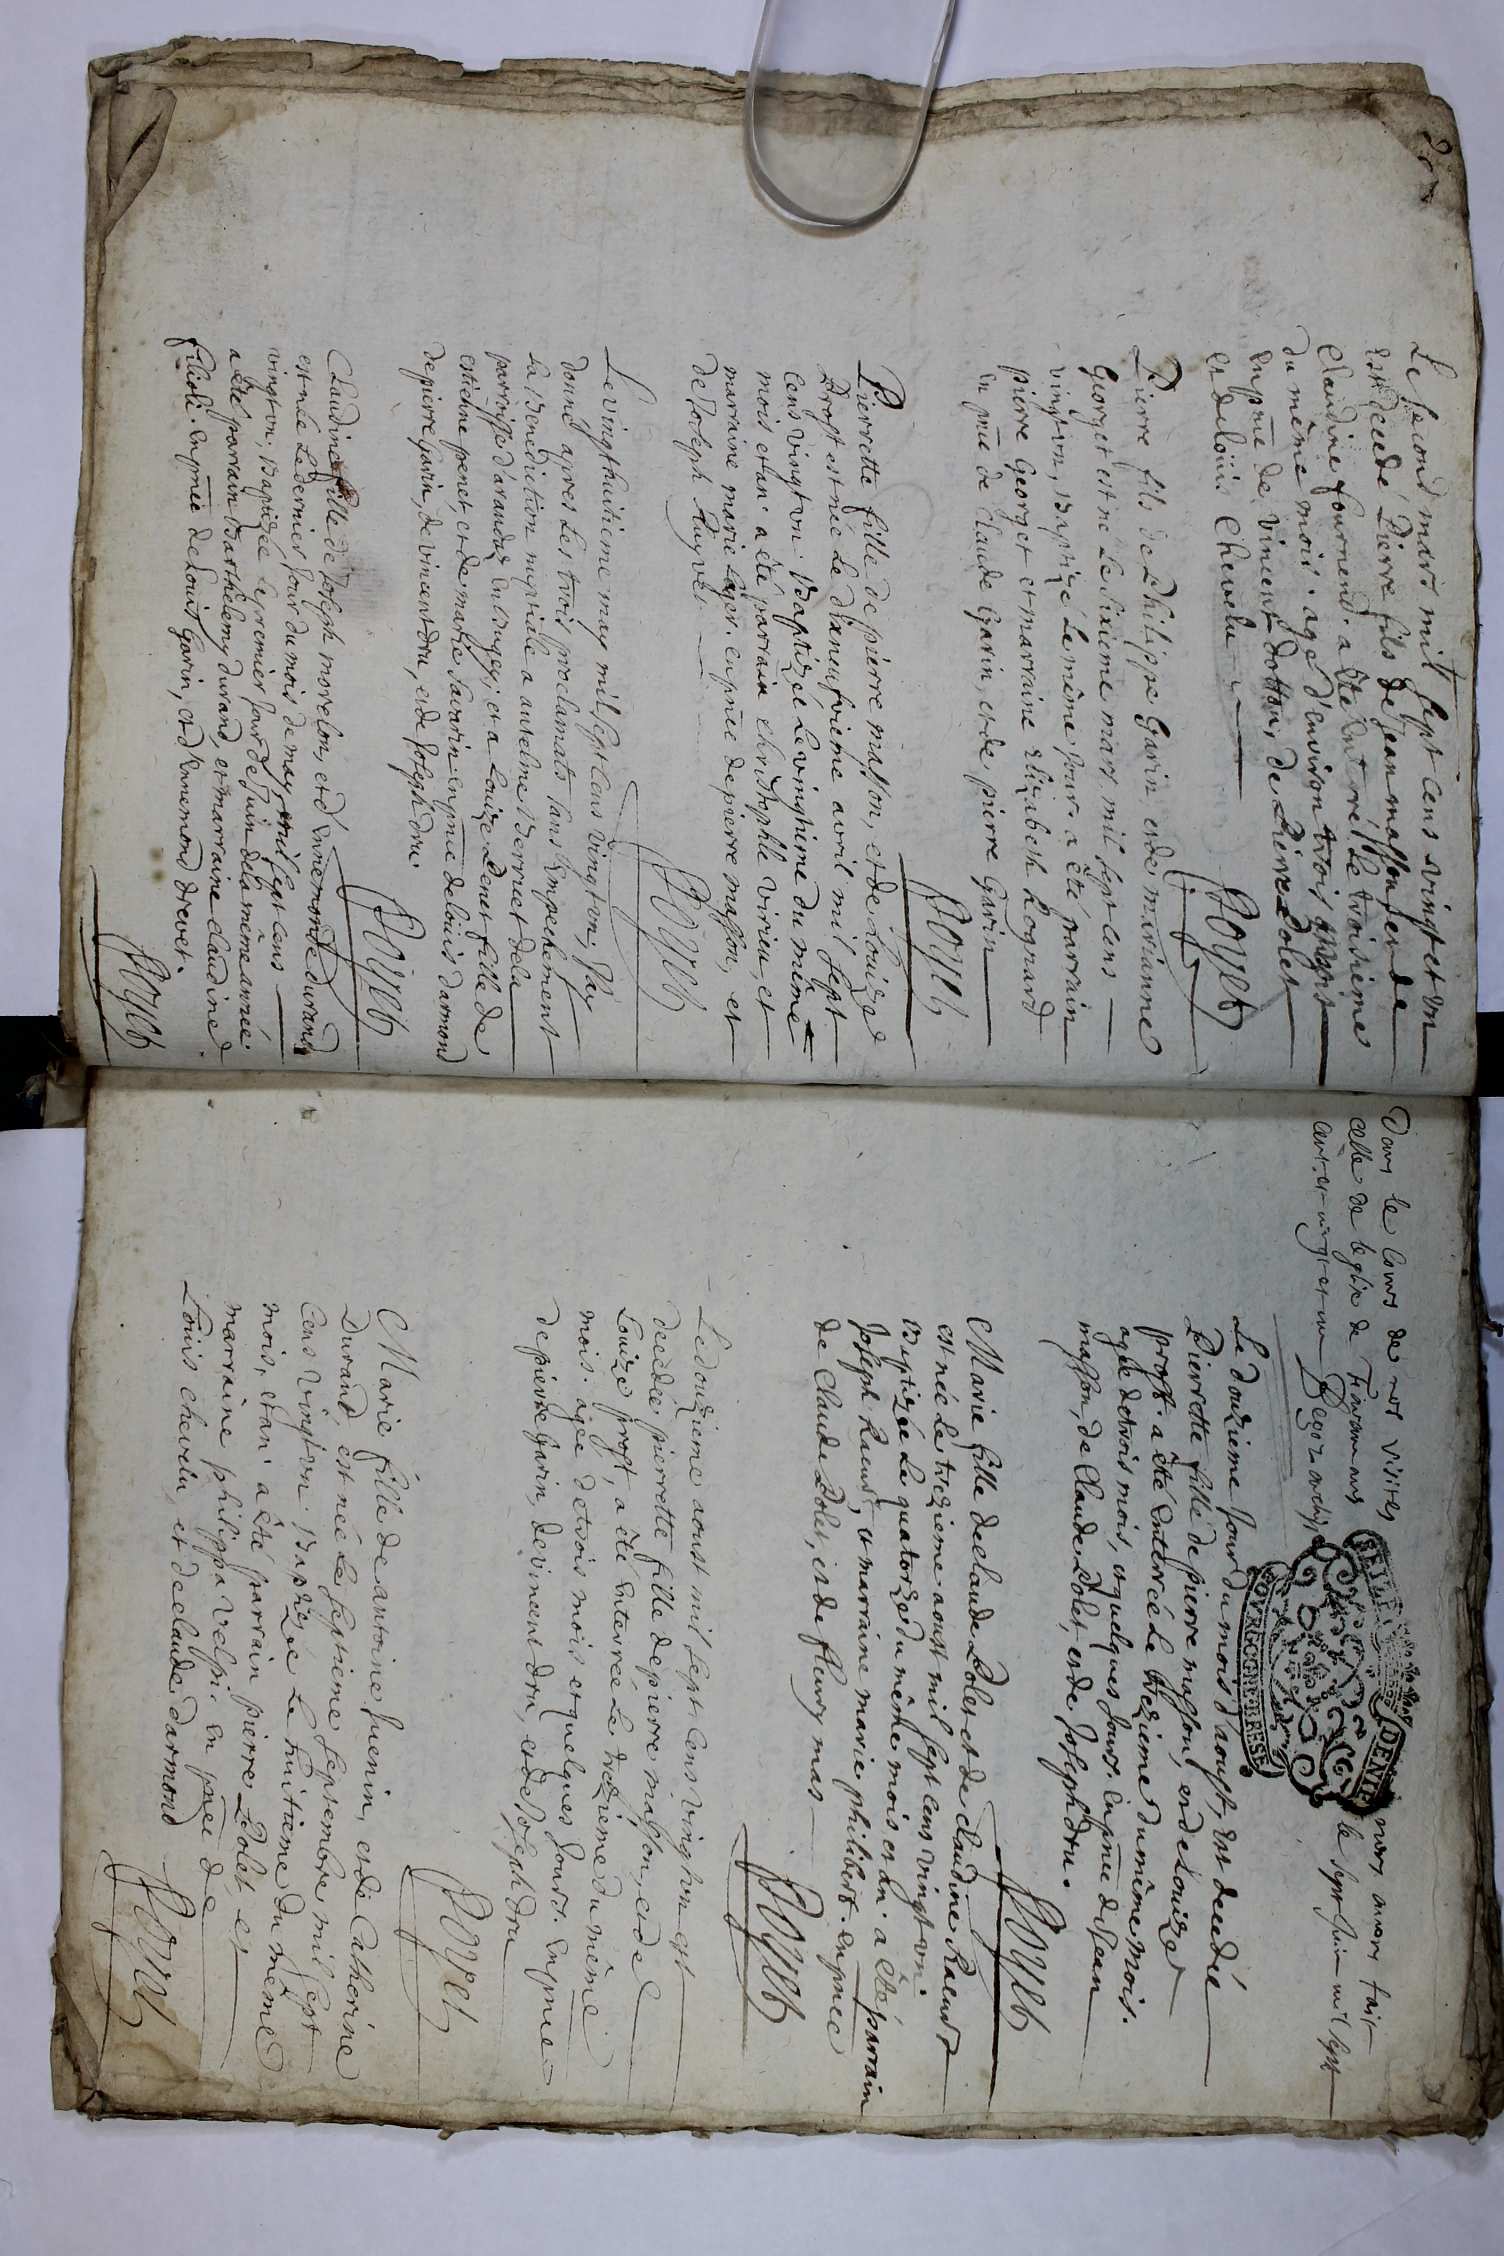 Le second mars mil sept cens vingt et vn
est decedé Pierre fils de Jean masson, et de
Claudine fournend. a été enterré le troisieme
du même mois. agé d'environ trois ans
en pnce de vincent dottor, de Pierre Polet
et de loüis Chevelu
Poyet
Pierre fils de Philippe Garin et de marianne
Georget est né le sixieme mars mil sept cens
vingt vn, Baptizé le même jour. a été parrain
pierre Georget et marraine elizabeth Cognard
en pnce de Claude Garin, et de pierre Garin
Poyet
Pierrette fille de pierre masson, et de Louize
Prost est née le dixneufvieme avril mil sept
cens vingt vn. Baptizée le vingtieme du même
mois et an. a été parrain christophle virieu, et
marraine marie. en pnce de pierre masson, et
de Joseph Puyvet
Poyet
Le vingthuitieme may mil sept cens vingt vn. J'ay
donné apres les trois proclamats sans empechement
la Benediction nuptiale a antelme Berruet de la
parroisse d'arandaz en bugey; et a Louize Penet fille de
estienne penet, et de marie Savarin en pnce de loüis darmond
de pierre Garin, de vincent dru, et de Joseph dru.
Poyet
Claudine fille de Joseph morelon, et d'ennemonde durand
est née le dernier jour du mois de may mil sept cens
vingt vn; Baptizée le premier jour de Juin de la même année.
a été parrain Barthelemy durand, et marraine claudine
filioli. en pnce de Louis Garin, et d'Ennemond drevet.
Poyet
Dans le Cours de nos visites nous avons fait
celle de leglise de le sept Juin mil sept
cent et vingt et un
BOVRGOGNE BRESSE
DENIE
Le douzieme jour du mois d'aoust, est decedée
Pierrette fille de pierre masson, et de Louize
prost. a été enterrée le trezieme du même mois.
agée de trois mois, et quelques jours. en pnce de Jean
masson, de Claude Polet, et de Joseph dru.
Poyet
Marie fille de claude Polet et de claudine Raeurt
est née le trezieme aoust mil sept cens vingt vn
Baptizée le quatorze du même mois et an. a été parrain
Joseph Raeurt, et marraine marie philibert. en pnce
de Claude Polet, et de fleury mas
Poyet
Le douzieme aoust mil sept cens vingt vn est
decedée pierrette fille de pierre masson, et de
Louize prost, a été enterrée le trezieme du même
mois. agée de trois mois et quelques jours. en pnce
de pierre Garin, de vincent dru, et de Joseph dru
Poyet
Marie fille de antoine Juenin, et de Catherine
Durand, est née le septieme septembre mil sept
cens vingt vn. Baptizée le huitieme du même
mois, et an. a été parrain pierre Polet, et
marraine philippa velpi. en pnce de
Louis chevelu, et de claude darmond
Poyet